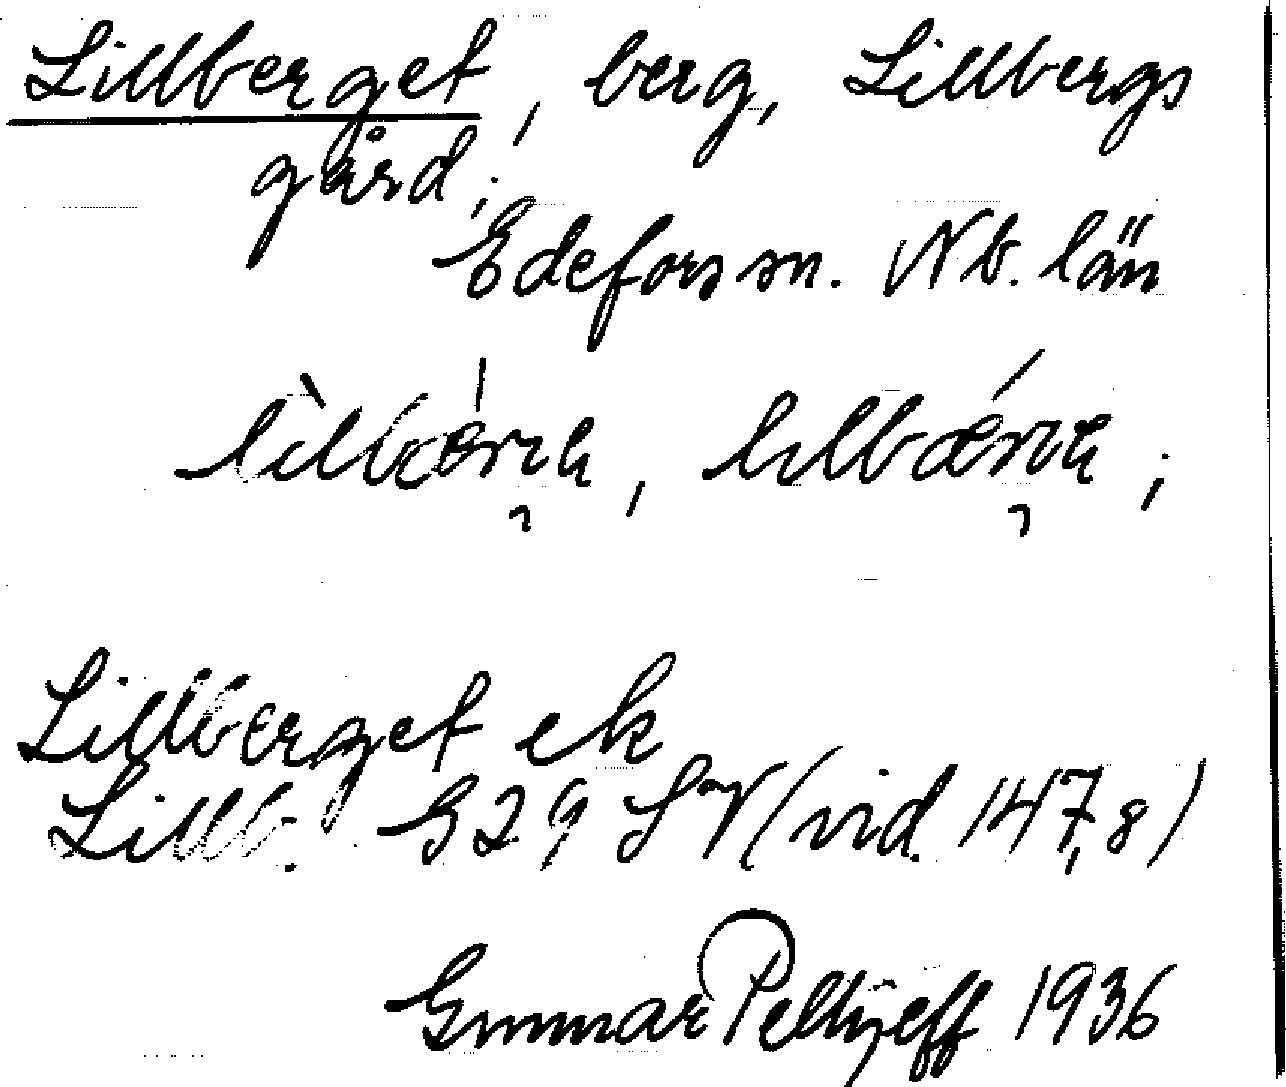 Lillberget, berg, Lillbergs
gård,
Edefors sn. Nb. län
Lillberget ek
Lillb. G29 SV (vid 147,8)
Gunnar Pellijeff 1936